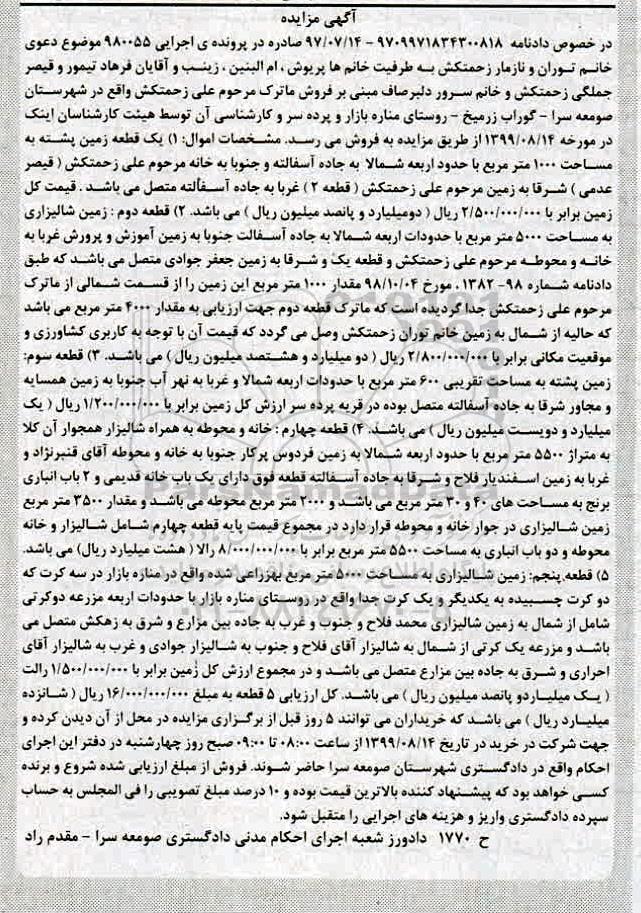 آگهی مزایده
در خصوص دادنامه ۹۷۰۹۹۷۱۸۳۴۳۰۰۸۱۸ - ۹۷/۰۷/۱۴ صادره در پرونده ی اجرایی ۹۸۰۰۵۵ موضوع دعوی
خانم توران و نازمار زحمتکش به طرفیت خانم ها پریوش ، ام البنین ، زینب و آقایان فرهاد تیمور و قیصر
جملگی زحمتکش و خانم سرور دلیرصاف مبنی بر فروش ماترک مرحوم علی زحمتکش واقع در شهرستان
صومعه سرا - گوراب زرمیخ - روستای مناره بازار و پرده سر و کارشناسی آن توسط هیئت کارشناسان اینک
در مورخه ۱۳۹۹/۰۸/۱۴ از طریق مزایده به فروش می رسد. مشخصات اموال: ۱) یک قطعه زمین پشته به
مساحت ۱۰۰۰ متر مربع با حدود اربعه شمالا به جاده آسفالته و جنوبا به خانه مرحوم علی زحمتکش ( قیصر
عدمی ) شرقا به زمین مرحوم علی زحمتکش ( قطعه ۲ ) غربا به جاده آسفالته متصل می باشد . قیمت کل
زمین برابر با ۲/۵۰۰/۰۰۰/۰۰۰ ریال ( دومیلیارد و پانصد میلیون ریال ) می باشد. ۲) قطعه دوم : زمین شالیزاری
به مساحت ۵۰۰۰ متر مربع با حدودات اربعه شمالا به جاده آسفالت جنوبا به زمین آموزش و پرورش غربا به
خانه و محوطه مرحوم علی زحمتکش و قطعه یک و شرقا به زمین جعفر جوادی متصل می باشد که طبق
دادنامه شماره ۹۸- ۱۳۸۲ ، مورخ ۹۸/۱۰/۰۴ مقدار ۱۰۰۰ متر مربع این زمین را از قسمت شمالی از ماترک
مرحوم علی زحمتکش جدا گردیده است که ماترک قطعه دوم جهت ارزیابی به مقدار ۴۰۰۰ متر مربع می باشد
که حالیه از شمال به زمین خانم توران زحمتکش وصل می گردد که قیمت آن با توجه به کاربری کشاورزی و
موقعیت مکانی برابر با ۲/۸۰۰/۰۰۰/۰۰۰ ریال ( دو میلیارد و هشتصد میلیون ریال ) می باشد. ۳) قطعه سوم:
زمین پشته به مساحت تقریبی ۶۰۰ متر مربع با حدودات اربعه شمالا و غربا به نهر آب جنوبا به زمین همسایه
و مجاور شرقا به جاده آسفالته متصل بوده در قریه پرده سر ارزش کل زمین برابر با ۱/۲۰۰/۰۰۰/۰۰۰ ریال ( یک
میلیارد و دویست میلیون ریال ) می باشد. ۴) قطعه چهارم : خانه و محوطه به همراه شالیزار همجوار آن کلا
به متراژ ۵۵۰۰ متر مربع با حدود اربعه شمالا به زمین فردوس پرکار جنوبا به خانه و محوطه آقای قنبرنژاد و
غربا به زمین اسفندیار فلاح و شرقا به جاده آسفالته قطعه فوق دارای یک باب خانه قدیمی و ۲ باب انباری
برنج به مساحت های ۴۰ و ۳۰ متر مربع می باشد و ۲۰۰۰ متر مربع محوطه می باشد و مقدار ۳۵۰۰ متر مربع
زمین شالیزاری در جوار خانه و محوطه قرار دارد در مجموع قیمت پایه قطعه چهارم شامل شالیزار و خانه
محوطه و دو باب انباری به مساحت ۵۵۰۰ متر مربع برابر با ۸/۰۰۰/۰۰۰/۰۰۰ رالا ( هشت میلیارد ریال) می باشد.
۵) قطعه پنجم: زمین شالیزاری به مساحت ۵۰۰۰ متر مربع بهزراعی شده واقع در مناره بازار در سه کرت که
دو کرت چسبیده به یکدیگر و یک کرت جدا واقع در روستای مناره بازار با حدودات اربعه مزرعه دوکرتی
شامل از شمال به زمین شالیزاری محمد فلاح و جنوب و غرب به جاده بین مزارع و شرق به زهکش متصل می
باشد و مزرعه یک کرتی از شمال به شالیزار آقای فلاح و جنوب به شالیزار جوادی و غرب به شالیزار آقای
احراری و شرق به جاده بین مزارع متصل می باشد و در مجموع ارزش کل زمین برابر با ۱/۵۰۰/۰۰۰/۰۰۰ رالت
( یک میلیاردو پانصد میلیون ریال ) می باشد. کل ارزیابی ۵ قطعه به مبلغ ۱۶/۰۰۰/۰۰۰/۰۰۰ ریال ( شانزده
میلیارد ریال ) می باشد که خریداران می توانند ۵ روز قبل از برگزاری مزایده در محل از آن دیدن کرده و
جهت شرکت در خرید در تاریخ ۱۳۹۹/۰۸/۱۴ از ساعت ۰۸:۰۰ تا ۰۹:۰۰ صبح روز چهارشنبه در دفتر این اجرای
احکام واقع در دادگستری شهرستان صومعه سرا حاضر شوند. فروش از مبلغ ارزیابی شده شروع و برنده
کسی خواهد بود که پیشنهاد کننده بالاترین قیمت بوده و ۱۰ درصد مبلغ تصویبی را فی المجلس به حساب
سپرده دادگستری واریز و هزینه های اجرایی را متقبل شود.
ح ۱۷۷۰ دادورز شعبه اجرای احکام مدنی دادگستری صومعه سرا - مقدم راد